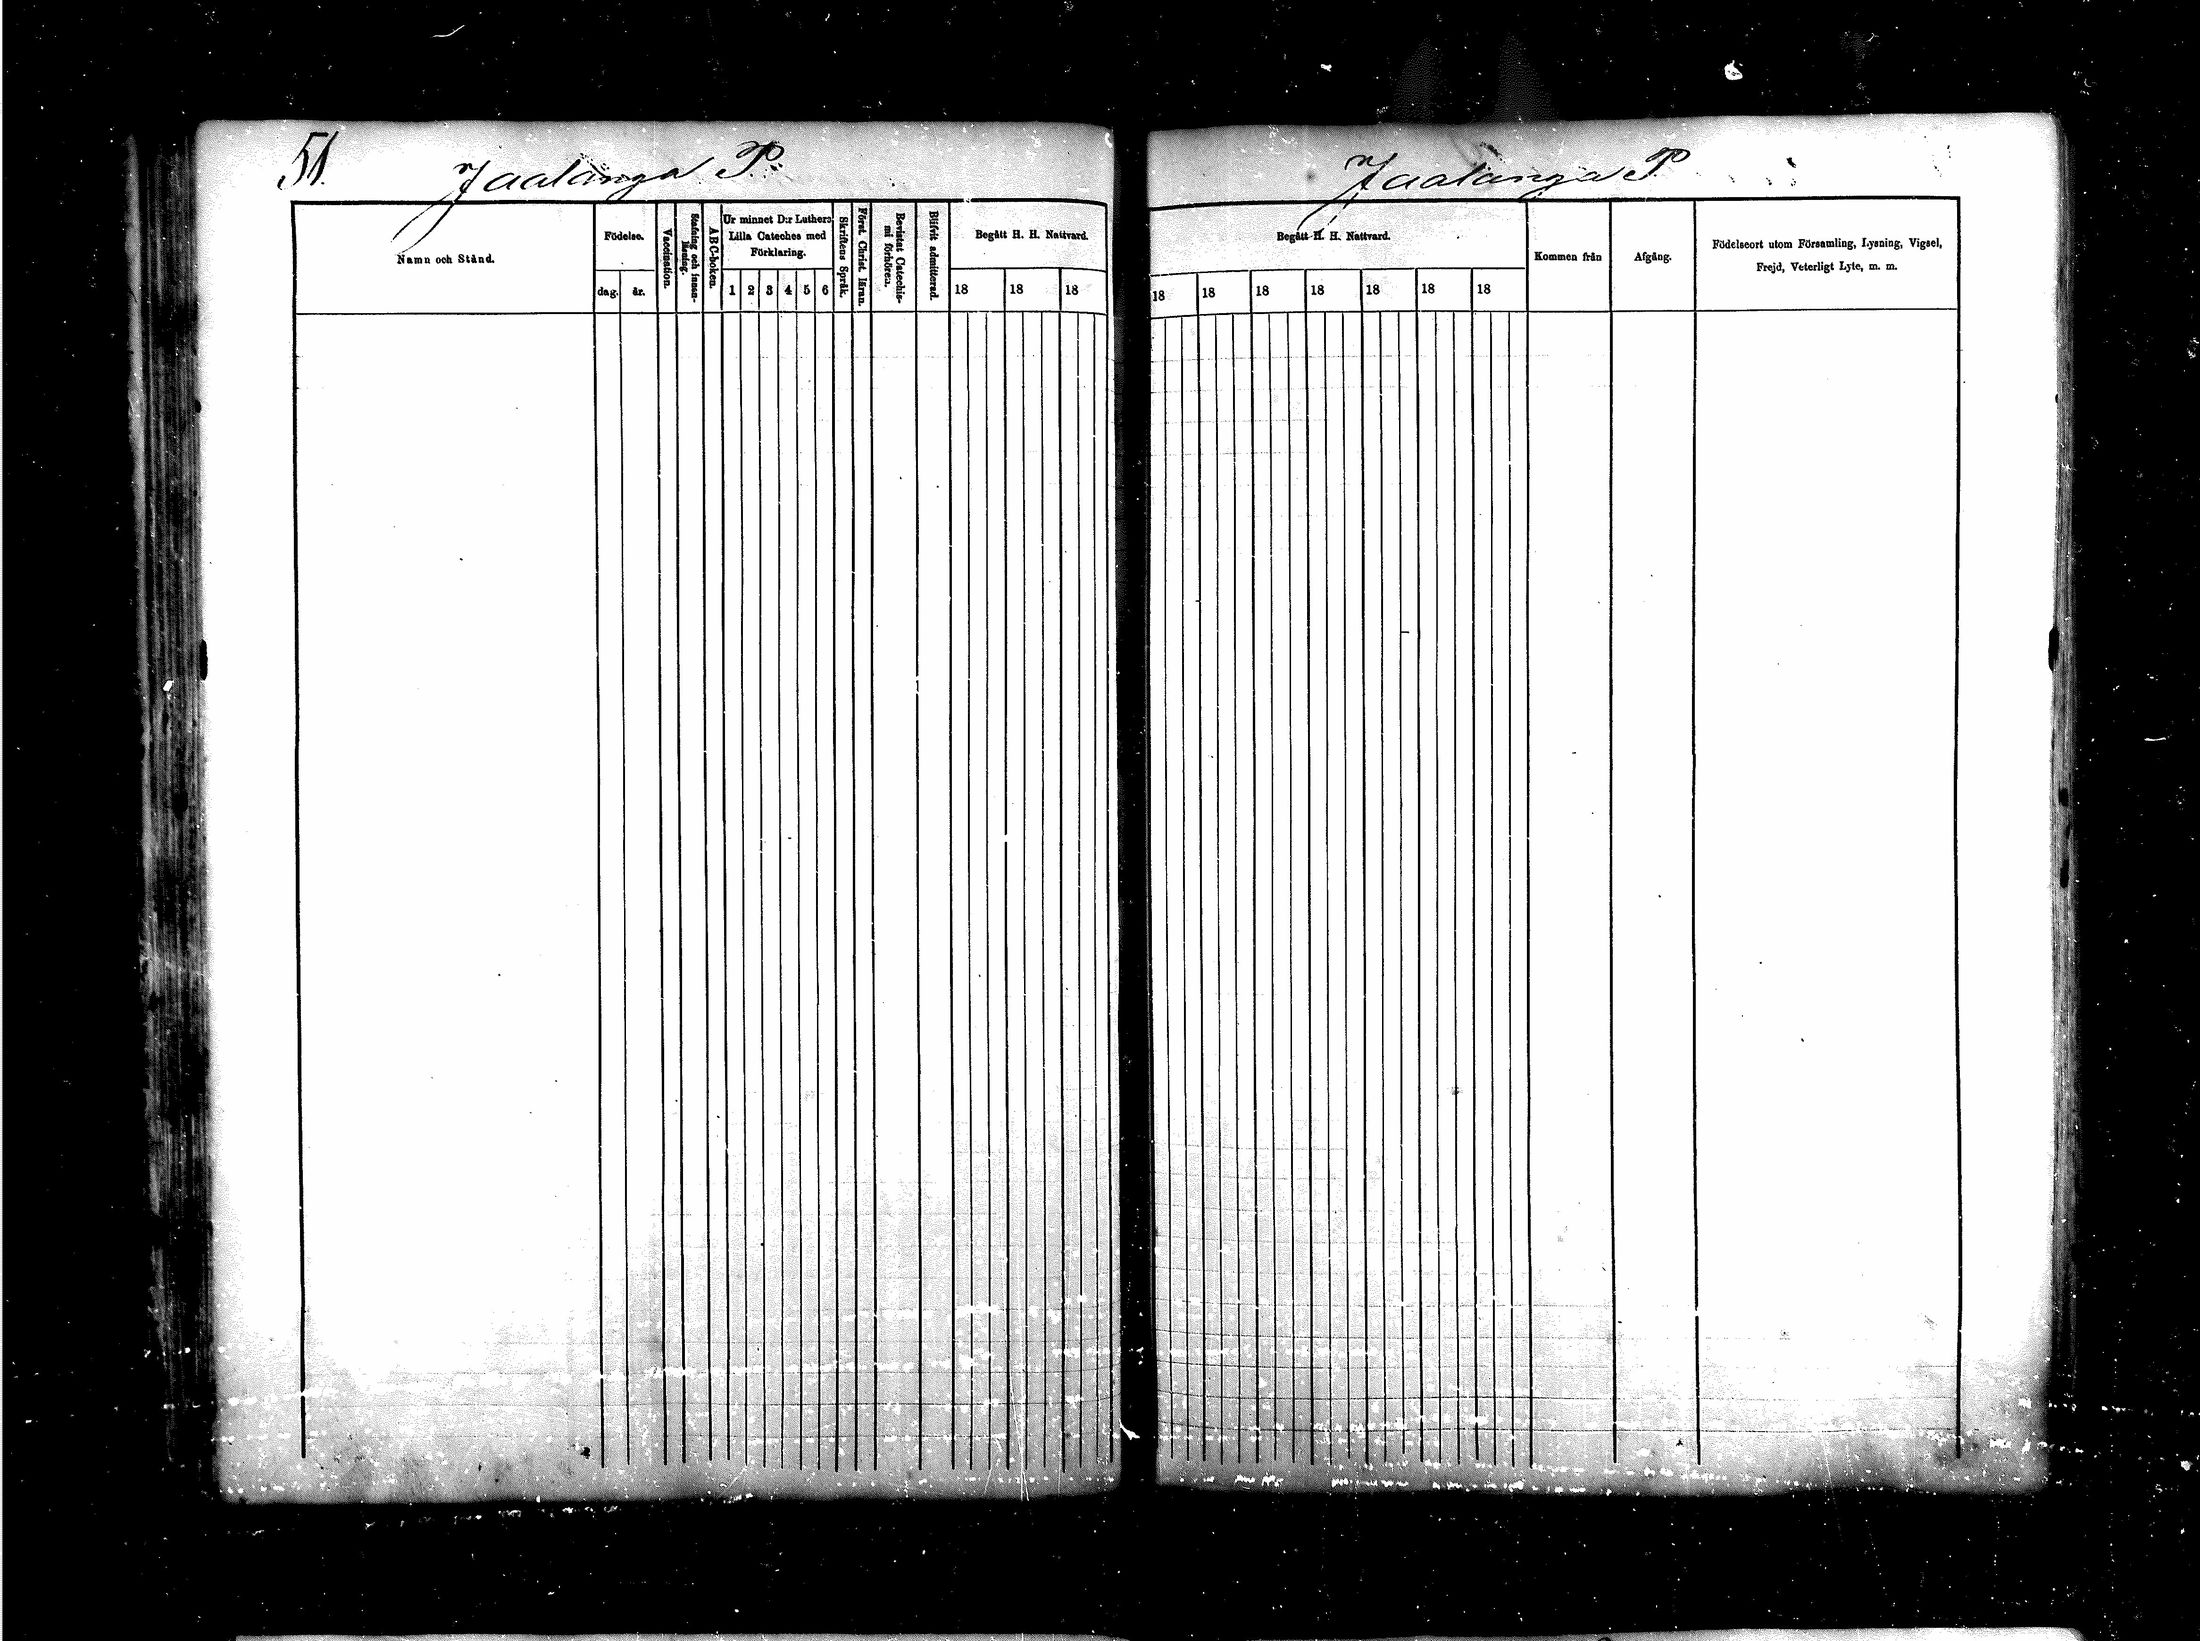 51.
Jaalanga P.
Namn och Stånd.
Födelse.
dag.
år.
Vaccination.
Stafning och innan-
läsning.
ABC-boken.
Ur minnet D:r Luthers
Lilla Cateches med
Förklaring.
1 2 3 4 5 6
Skriftens Språk.
Först. Christ. läran.
Bevistat Catechis-
mi förhören.
Blifvit admitterad.
Begått H. H. Nattvard.
18 18 18
Jaalanga P
Begått H. H. Nattvard.
18 18 18 18 18 18 18
Kommen från
Afgång.
Födelseort utom Församling, Lysning, Vigsel,
Frejd, Veterligt Lyte, m. m.